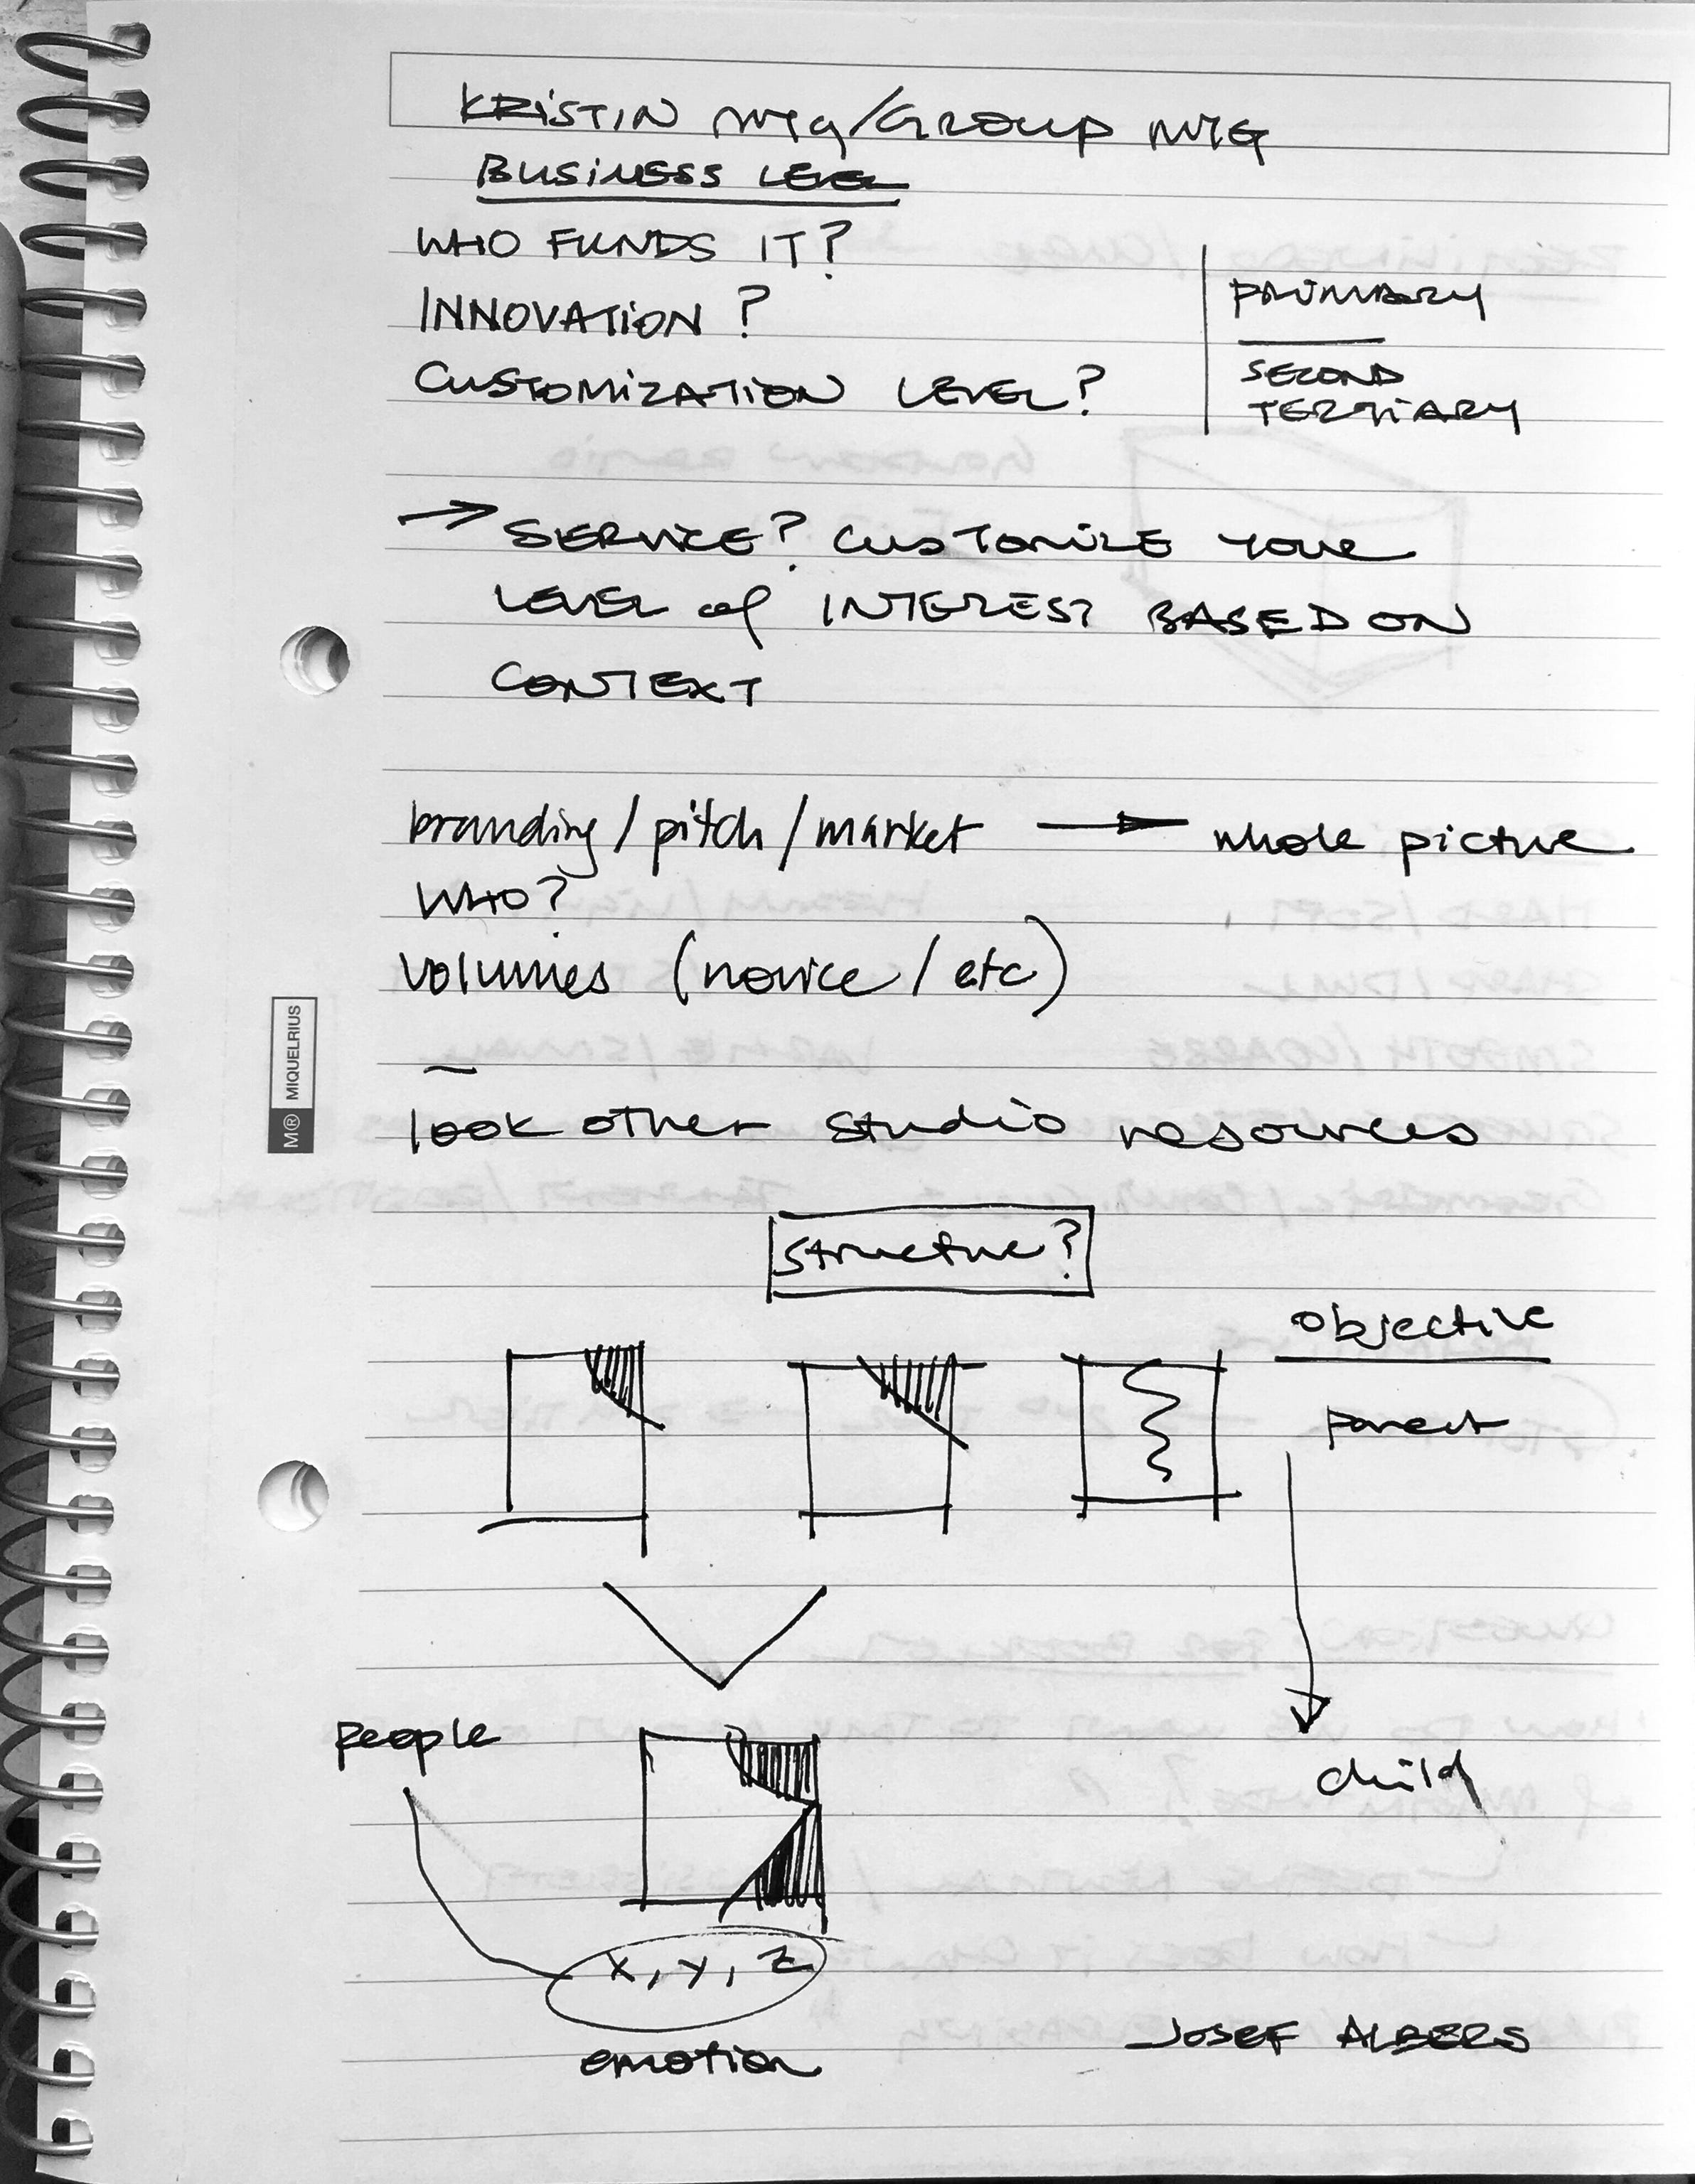 KRISTIN MTG/GROUP MTG
BUSINESS LEVEL
WHO FUNDS IT?
INNOVATION?
CUSTOMIZATION LEVEL?
PRIMARY
SECOND
TERTIARY
→ SERVICE? CUSTOMIZE YOUR
LEVEL of INTEREST BASED ON
CONTEXT
branding/pitch/market → whole picture
WHO?
volumes (novice/etc)
–
look other studio resources
structure?
objective
parent
people
child
x, y, z
emotion
JOSEF ALBERS
M® MIQUELRIUS